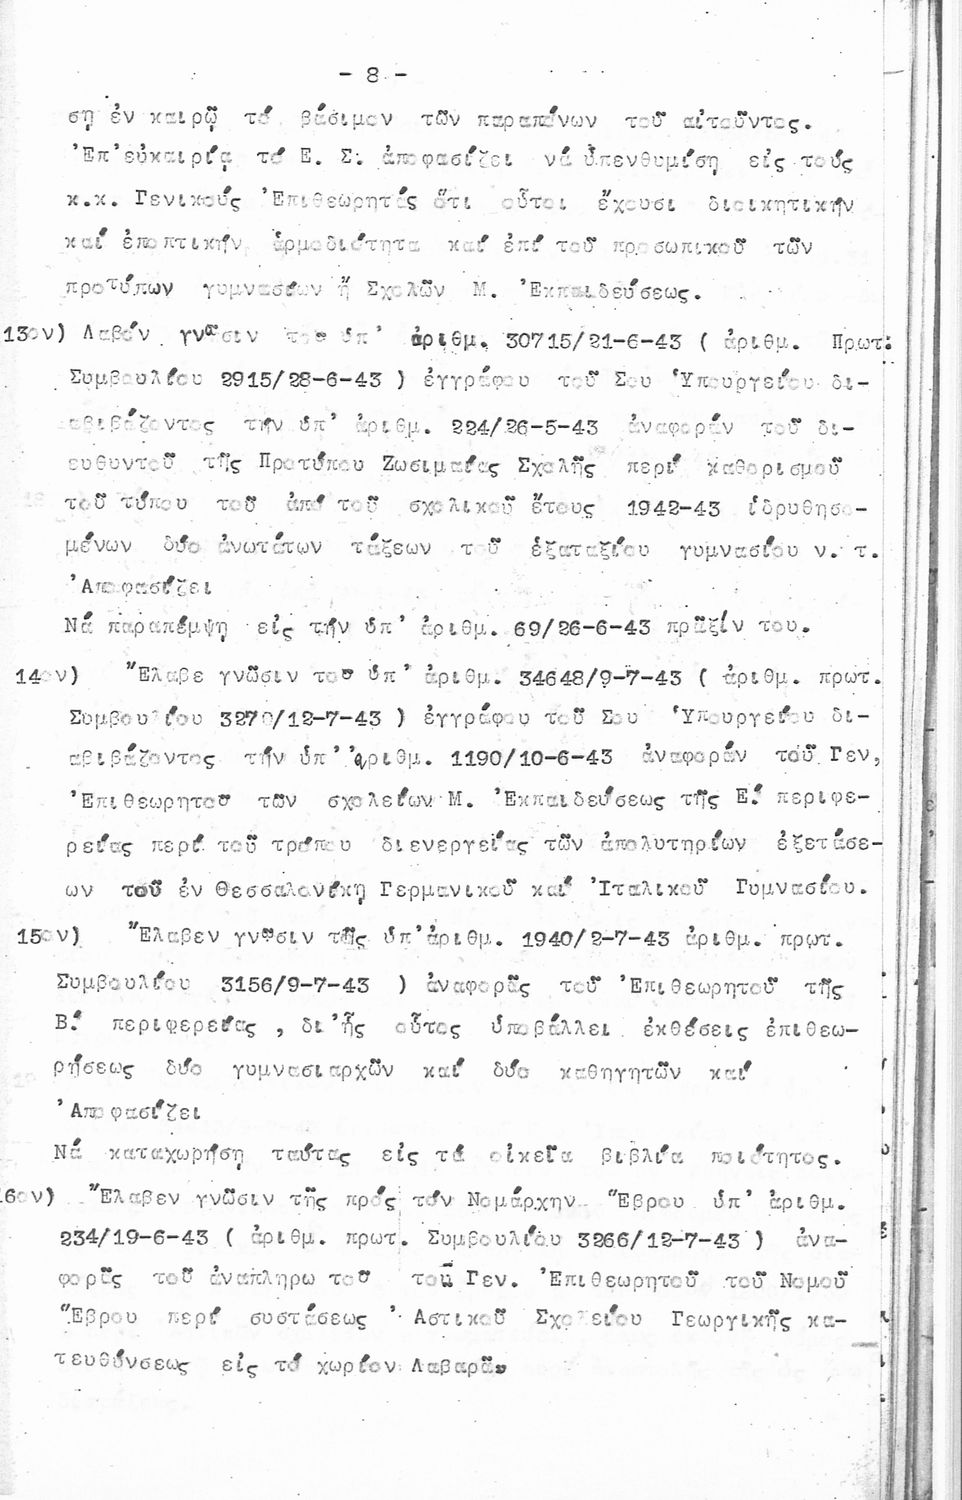 - 8 -
ση ἐν καιρῷ τό βάσιμον τῶν παραπάνων τοῦ αἰτοῦντος.
Ἐπ'εὐκαιρίᾳ τό Ε. Σ. ἀποφασίζει νά ὑπενθυμίση εἰς τούς
κ.κ. Γενικούς Ἐπιθεωρητάς ὅτι οὗτοι ἔχουσι διοικητικήν
καί ἐποπτικήν ἁρμοδιότητα καί ἐπί τοῦ προσωπικοῦ τῶν
προτύπων γυμνασίων ἤ Σχολῶν Μ. Ἐκπαιδεύσεως.
13ον) Λαβόν γνῶσιν τοῦ ὑπ' ἀριθμ. 30715/21-6-43 ( ἀριθμ. Πρωτ.
Συμβουλίου 2915/28-6-43 ) ἐγγράφου τοῦ Σου Ὑπουργείου δι-
αβιβάζοντος τήν ὑπ' ἀριθμ. 224/26-5-43 ἀναφοράν τοῦ δι-
ευθυντοῦ τῆς Προτύπου Ζωσιμαίας Σχολῆς περί καθορισμοῦ
τοῦ τύπου τοῦ ἀπό τοῦ σχολικοῦ ἔτους 1942-43 ἱδρυθησο-
μένων δύο ἀνωτάτων τάξεων τοῦ ἑξαταξίου γυμνασίου ν. τ.
Ἀποφασίζει
Νά παραπέμψη εἰς τήν ὑπ' ἀριθμ. 69/26-6-43 πρᾶξίν του.
14ον) Ἔλαβε γνῶσιν τοῦ ὑπ' ἀριθμ. 34648/9-7-43 ( ἀριθμ. πρωτ.
Συμβουλίου 3270/12-7-43 ) ἐγγράφου τοῦ Σου Ὑπουργείου δι-
αβιβάζοντος τήν ὑπ' ἀριθμ. 1190/10-6-43 ἀναφοράν τοῦ Γεν,
Ἐπιθεωρητοῦ τῶν σχολείων Μ. Ἐκπαιδεύσεως τῆς Ε.' περιφε-
ρείας περί τοῦ τρόπου διενεργείας τῶν ἀπολυτηρίων ἐξετάσε-
ων τοῦ ἐν Θεσσαλονίκη Γερμανικοῦ καί Ἰταλικοῦ Γυμνασίου.
15ον) Ἔλαβεν γνῶσιν τῆς ὑπ'ἀριθμ. 1940/2-7-43 ἀριθμ. πρωτ.
Συμβουλίου 3156/9-7-43 ) ἀναφορᾶς τοῦ Ἐπιθεωρητοῦ τῆς
Β.' περιφερείας , δι'ἧς οὗτος ὑποβάλλει ἐκθέσεις ἐπιθεω-
ρήσεως δύο γυμνασιαρχῶν καί δύο καθηγητῶν καί
Ἀποφασίζει
Νά καταχωρήση ταύτας εἰς τά οἰκεῖα βιβλία ποιότητος.
16ον) Ἔλαβεν γνῶσιν τῆς πρός τόν Νομάρχην Ἕβρου ὑπ' ἀριθμ.
234/19-6-43 ( ἀριθμ. πρωτ. Συμβουλίου 3266/12-7-43 ) ἀνα-
φορᾶς τοῦ ἀναπληρω τοῦ τοῦ Γεν. Ἐπιθεωρητοῦ τοῦ Νομοῦ
Ἕβρου περί συστάσεως Ἀστικοῦ Σχολείου Γεωργικῆς κα-
τευθύνσεως εἰς τό χωρίον Λαβαρᾶ»